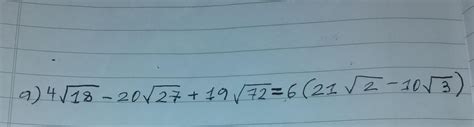 a) 4√18 - 20√27 + 19√72 = 6(21√2 - 10√3)